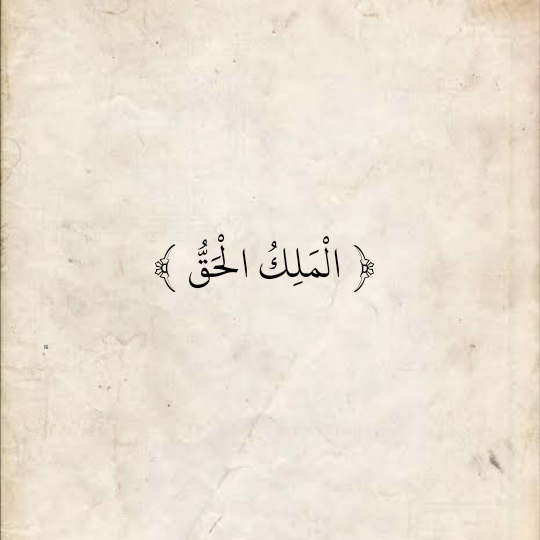 ﴿ الْمَلِكُ الْحَقُّ ﴾